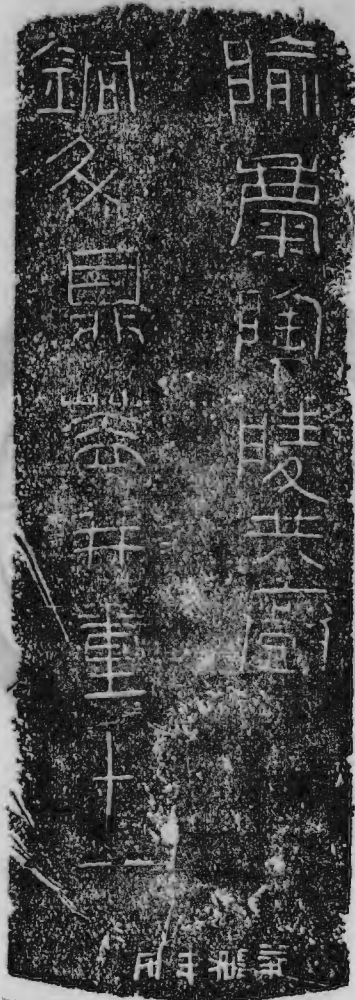 隃麋陶陵共廚
銅斗鼎蓋并重十一